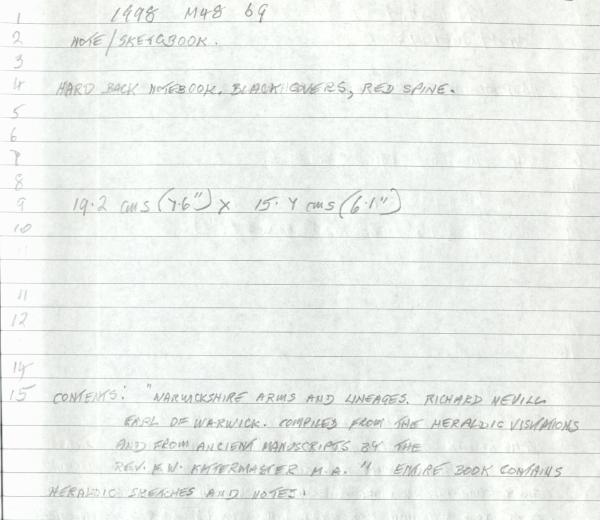 1 1998 M48 69
2 NOTE/SKETCBOOK.
3
4 HARD BACK NOTEBOOK. BLACK COVERS, RED SPINE.
5
6
7
8
9 19.2 cms (7.6") x 15.4 cms (6.1")
10
11
12
14
15 CONTENTS: "WARWICKSHIRE ARMS AND LINEAGES. RICHARD NEVILL
EARL OF WARWICK. COMPILED FROM THE HERALDIC VISITATIONS
AND FROM ANCIENT MANUSCRIPTS BY THE
REV. F.W. KITTERMASTER M.A." ENTIRE BOOK CONTAINS
HERALDIC SKETCHES AND NOTES.